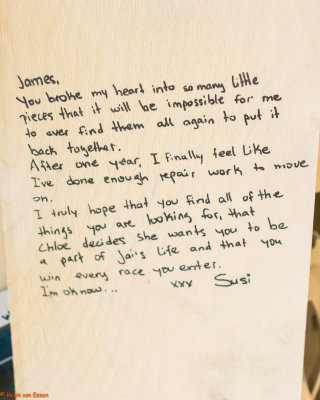 James,
You broke my heart into so many little
pieces that it will be impossible for me
to ever find them all again to put it
back together.
After one year, I finally feel like
I've done enough repair work to move
on.
I truly hope that you find all of the
things you are looking for, that
Chloe decides she wants you to be
a part of Jai's life and that you
win every race you enter.
I'm ok now... xxx Susi
© Kevin van Essen